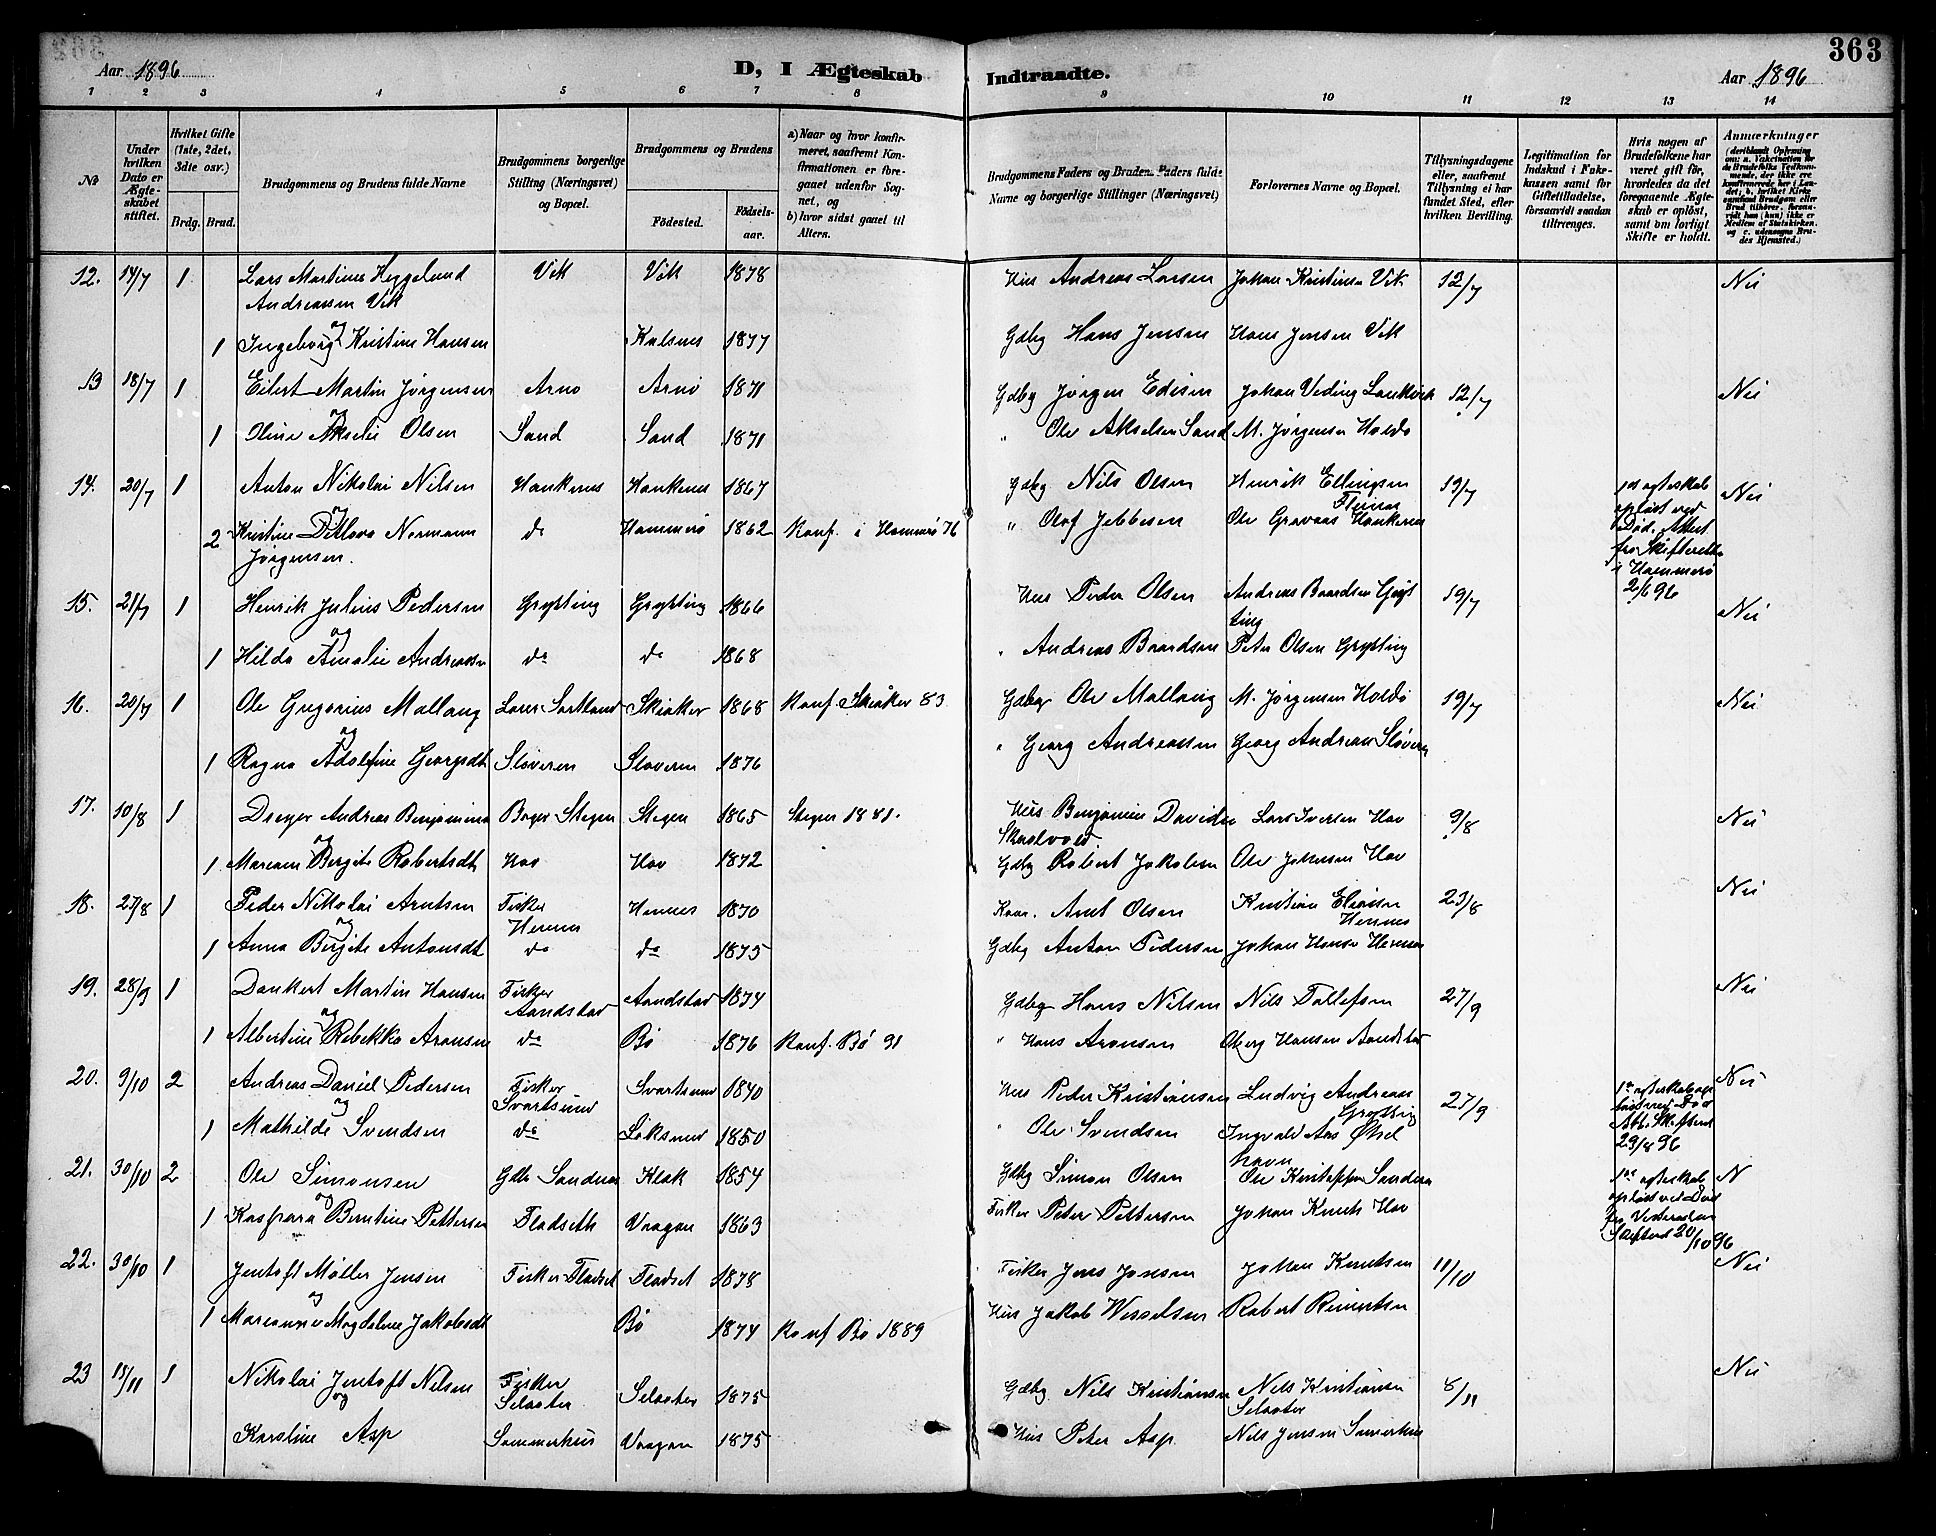 363
Aar 1896
D, I Ægteskab Indtraadte.
Aar 1896
1 2 3 4 5 6 7 8 9 10 11 12 13 14
№
Under hvilken Dato er Ægteskabet stiftet.
Hvilket Gifte (1ste, 2det, 3dte osv.)
Brdg. Brud.
Brudgommens og Brudens fulde Navne
Brudgommens borgerlige Stilling (Næringsvei) og Bopæl.
Brudgommens og Brudens
Födested. Födselsaar.
a) Naar og hvor konfirmeret, saafremt Konfirmationen er foregaaet udenfor Sognet, og
b) hvor sidst gaaet til Altern.
Brudgommens Faders og Brudens Faders fulde Navne og borgerlige Stillinger (Næringsvei)
Forlovernes Navne og Bopæl.
Tillysningsdagene eller, saafremt Tillysning ei har fundet Sted, efter hvilken Bevilling.
Legitimation for Indskud i Enkekassen samt for Giftetilladelse, forsaavidt saadan tiltrænges.
Hvis nogen af Brudefolkene har været gift før, hvorledes da det foregaaende Ægteskab er opløst, samt om lovligt Skifte er holdt.
Anmærkninger
12. 14/7 1 Lars Martinus Heggelund Vik Vik 1878 Hus Andreas Larsen Johan Kristensen Vik 12/7 Nei
Andreassen Vik
og
1 Ingeborg Kristine Hansen Kalsnes 1877 Gdbg Hans Jensen Hans Jensen Vik
13 18/7 1 Eilert Martin Jørgensen Arnø Arnø 1871 Gdbg Jørgen Edisen Johan Veding 12/7 Nei
og
1 Oline Akselie Olsen Sand Sand 1871 " Ole Akselsen Sand M. Jørgensen Holdø
14. 20/7 1 Anton Nikolai Nilsen Haukenes Haukenes 1867 Gdbg Nils Olsen Henrik Ellingsen 19/7 1ste egteskab Nei
og Fleines opløst ved
2 Kristine Ditlova Normann do Hammerø 1862 Konf. i Hamerø 76 " Olaf Jebbesen Ole Gravaas Haukenes Død. Attest
Jørgensen. fra Skifteretten
i Hammerø
2/6 96
15. 21/7 1 Henrik Julius Pedersen Grytting Grytting 1866 Hus Peder Olsen Andreas Baardsen Gryt 19/7 Nei
og ting
1 Hilda Amalie Andreassen do do 1868 " Andreas Baardsen Peter Olsen Grytting
16. 20/7 1 Ole Gregorius Mallang Lærer Sortland Skiaker 1868 Konf. Skiåker 83 Gdbg Ole Mallang M. Jørgensen Holdø 19/7 Nei
og
1 Ragna Adolfine Georgsdt Sloveren Sloveren 1876 " Georg Andreassen Georg Andreassen
17. 10/8 1 Dreyer Andreas Benjaminsen Bager Stegen Stegen 1865 Stegen 1881. Hus Benjamin Davidsen Lars Iversen Hov 9/8 Nei
og
1 Mariane Bergite Robertsdt Hov Hov 1872 Gdbg Robert Jakobsen Ole Johansen Hov
18. 23/8 1 Peder Nikolai Arntsen Fisker Hennes 1870 Kaar. Arnt Olsen Kristian Eliasen 23/8 Nei
og Hennes Hennes
1 Anna Bergite Antonsdt do do 1875 Gdbg Anton Pedersen Johan Hansen Hennes
19. 28/9 1 Dankert Martin Hansen Fisker Aandstad 1874 Gdbg Hans Nilsen Nils Tollefsen 27/9 Nei
og Aandstad
1 Albertine Rebekka Aronsen do Bø 1876 Konf. Bø 91 " Hans Aronsen Oberg Hansen Aandstad
20. 9/10 2 Andreas Daniel Pedersen Fisker Svartsund 1840 Hus Peder Kristiansen Ludvig Andreas 27/9 Nei
og Svartsund Grytting
1 Mathilde Svendsen do Loksund 1850 " Ole Svendsen Ingvald Aas Øksel 29/8 96
havn
21. 30/10 2 Ole Simonsen Gdbr Sandnes Klak 1854 Gdbg Simon Olsen Ole Kristoffersen Sandnes 1ste egteskab N
og opløst ved Død
1 Kaspara Berntine Pettersen Fladseth Vaagan 1863 Fisker Peter Pettersen Johan Knuts Hov fra Vesteraalen
Skifteret 20/10 96
22. 30/10 1 Jentoft Møller Jensen Fisker Fladset Fladset 1878 Fisker Jens Jonsen Johan Knutsen 11/10 Nei
og
1 Marianne Magdeline Jakobsdt Bø 1874 Konf Bø 1889 Hus Jakob Wesselsen Robert Reinertsen
23 15/11 1 Nikolai Jentoft Nilsen Fisker Selaater 1875 Gdbg Nils Kristiansen Nils Kristiansen 8/11 Nei
og Selaater Selaater
Karoline Asp Sommerhus Vaagan 1875 Hus Peter Asp Nils Jensen Sommerhus